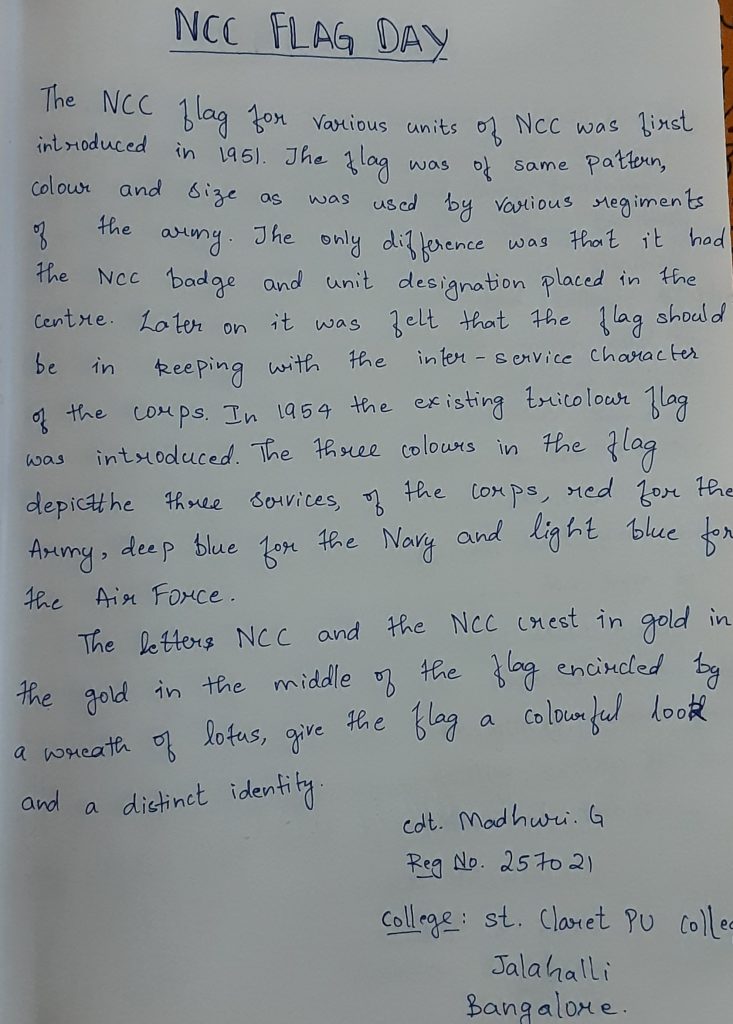 NCC FLAG DAY
The NCC flag for various units of NCC was first
introduced in 1951. The flag was of same pattern,
colour and size as was used by various regiments
of the army. The only difference was that it had
the NCC badge and unit designation placed in the
centre. Later on it was felt that the flag should
be in keeping with the inter-service character
of the corps. In 1954 the existing tricolour flag
was introduced. The three colours in the flag
depict the three services, of the corps, red for the
Army, deep blue for the Navy and light blue for
the Air Force.
The letters NCC and the NCC crest in gold in
the gold in the middle of the flag encircled by
a wreath of lotus, give the flag a colourful look
and a distinct identity.
cdt. Madhuri. G
Reg No. 257021
College: st. Claret PU Colle
Jalahalli
Bangalore.